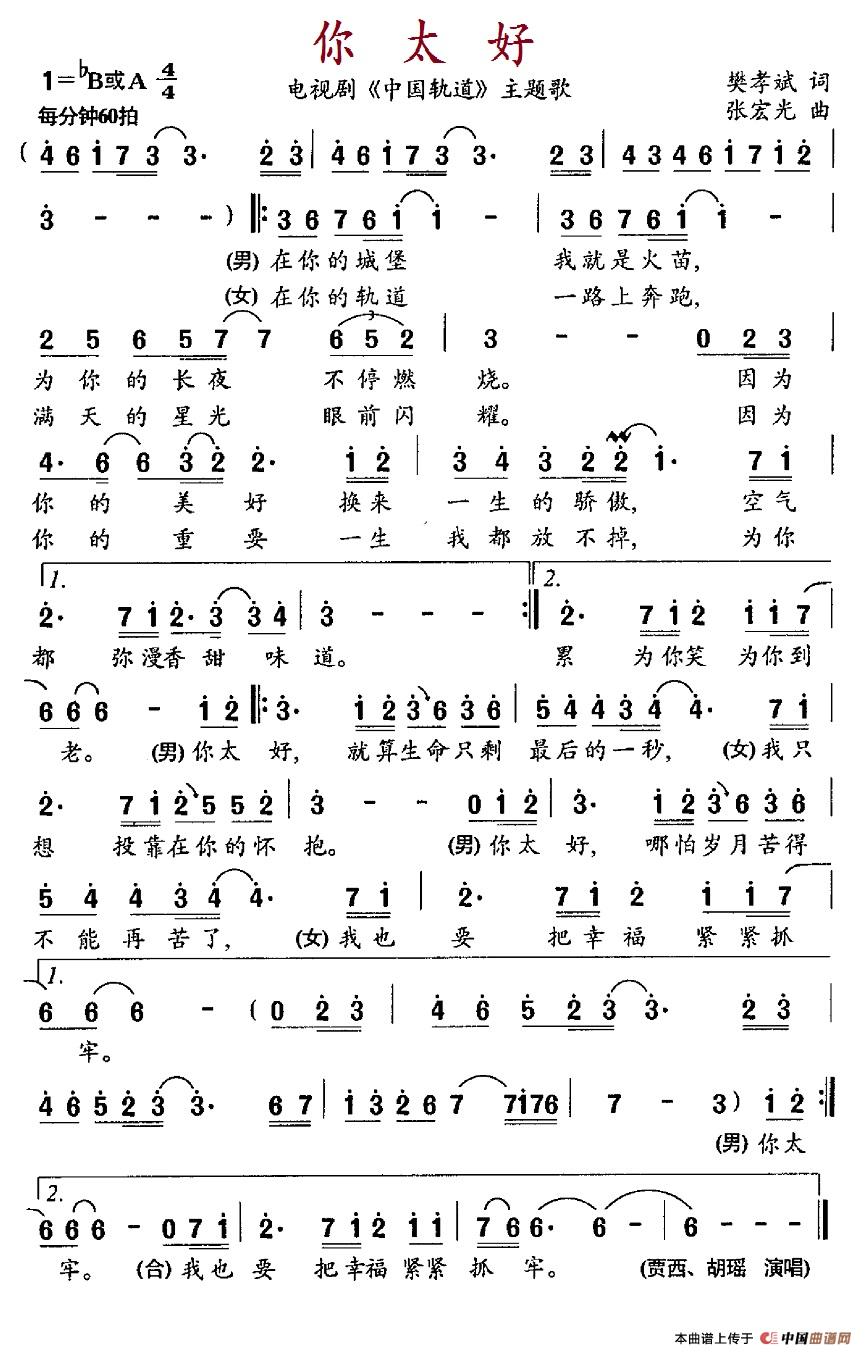 你太好
1=♭B或A 4/4
电视剧《中国轨道》主题歌
樊孝斌 词
每分钟60拍
张宏光 曲
( 4 6 1 7 3 3· 2 3 | 4 6 1 7 3 3· 2 3 | 4 3 4 6 1 7 1 2
3 - - - ) ‖: 3 6 7 6 1 1 - | 3 6 7 6 1 1 -
(男) 在你的城堡 我就是火苗,
(女) 在你的轨道 一路上奔跑,
2 5 6 5 7 7 6 5 2 | 3 - - 0 2 3 |
为你的长夜 不停燃烧。 因为
满天的星光 眼前闪耀。 因为
4· 6 6 3 2 2· 1 2 | 3 4 3 2 2 1· 7 1 |
你的美好 换来一生的骄傲, 空气
你的重要 一生我都放不掉, 为你
1. 2.
2· 7 1 2· 3 3 4 | 3 - - - :‖ 2· 7 1 2 1 1 7
都 弥漫香甜味道。 累 为你笑为你到
6 6 6 - 1 2 ‖: 3· 1 2 3 6 3 6 | 5 4 4 3 4 4· 7 1 |
老。 (男)你太好, 就算生命只剩最后的一秒, (女)我只
2· 7 1 2 5 5 2 | 3 - - 0 1 2 | 3· 1 2 3 6 3 6 |
想 投靠在你的怀抱。 (男)你太好, 哪怕岁月苦得
5 4 4 3 4 4· 7 1 | 2· 7 1 2 1 1 7
不能再苦了, (女)我也要 把幸福紧紧抓
1.
6 6 6 - ( 0 2 3 | 4 6 5 2 3 3· 2 3 |
牢。
4 6 5 2 3 3· 6 7 | 1 3 2 6 7 7176 | 7 - 3 ) 1 2 :‖
(男)你太
2.
6 6 6 - 0 7 1 | 2· 7 1 2 1 1 | 7 6 6· 6 - | 6 - - - ‖
牢。 (合)我也要 把幸福紧紧抓牢。 (贾西、胡瑶 演唱)
本曲谱上传于 中国曲谱网